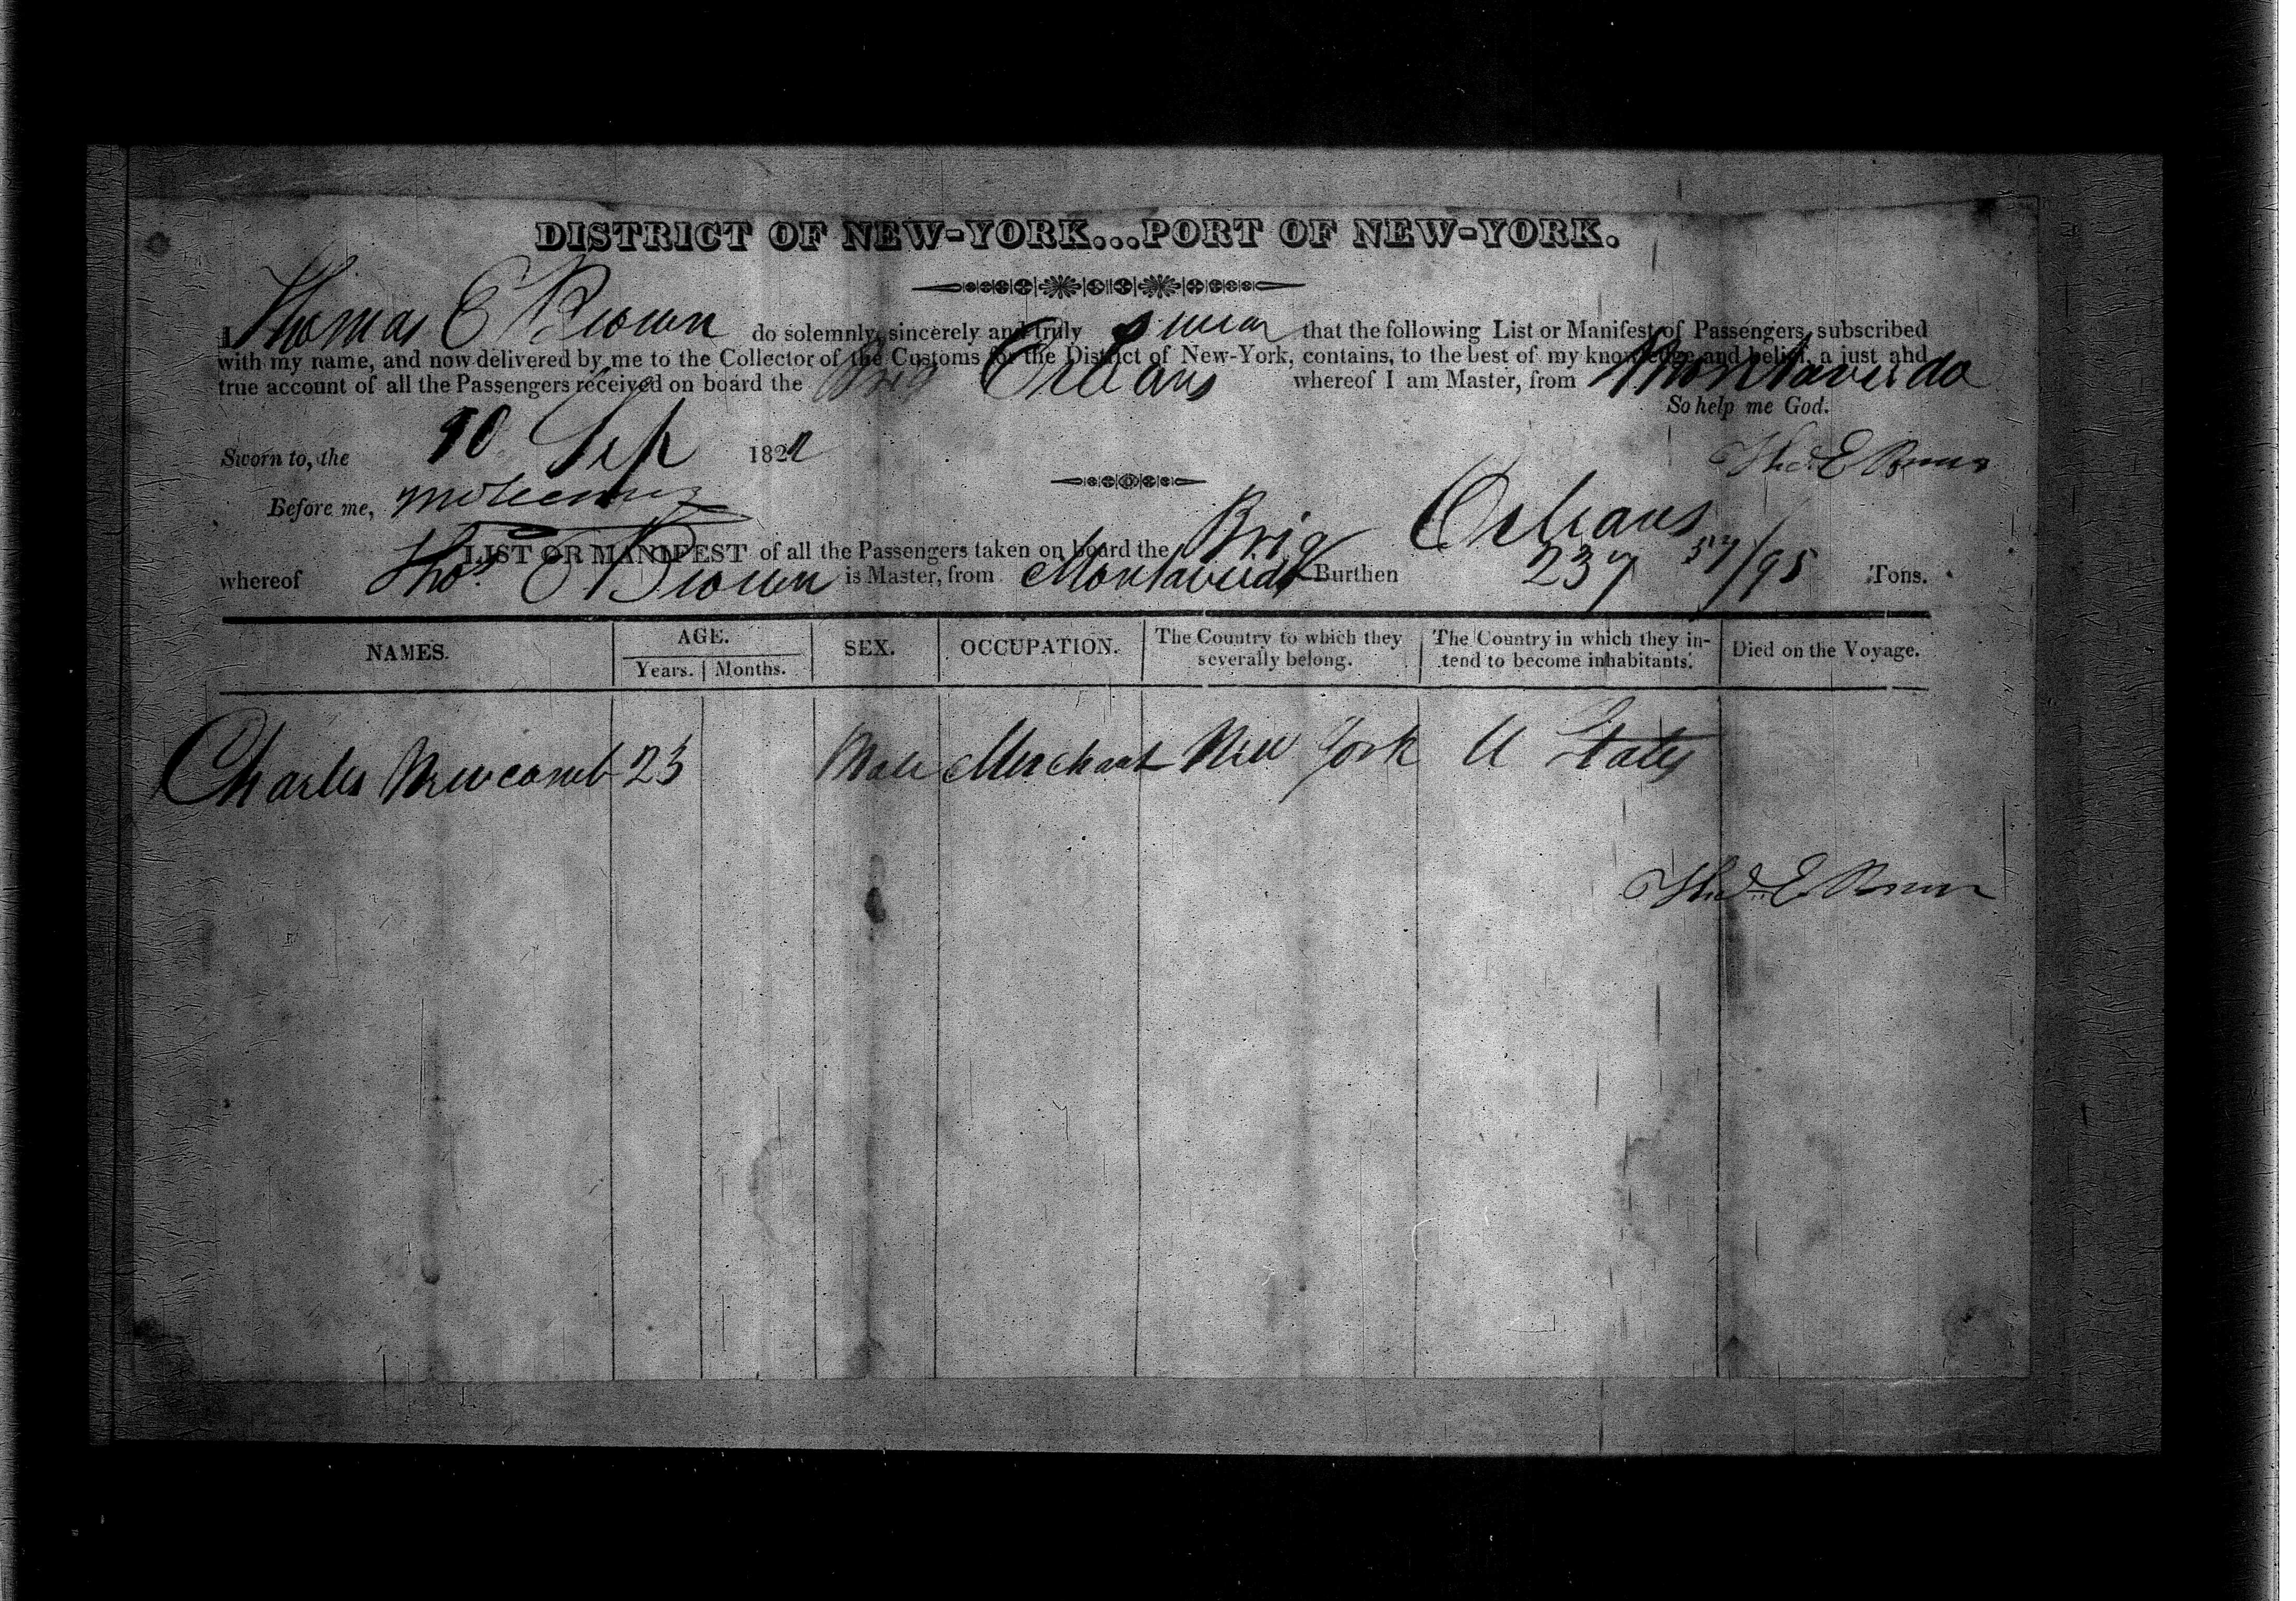 DISTRICT OF NEW-YORK...PORT OF NEW-YORK.
I Thomas E Brown do solemnly, sincerely and truly swear that the following List or Manifest of Passengers, subscribed
with my name, and now delivered by me to the Collector of the Customs for the District of New-York, contains, to the best of my knowledge and belief, a just and
true account of all the Passengers received on board the Brig Orleans whereof I am Master, from Montaveido
So help me God.
Sworn to, the Sep 182
Thos. E Brown
Before me,
LIST OR MANIFEST of all the Passengers taken on board the Brig Orleans
whereof Thos. E Brown is Master, from Montaveido Burthen 237 57/95 Tons.
NAMES. AGE. Years. Months. SEX. OCCUPATION. The Country to which they severally belong. The Country in which they intend to become inhabitants. Died on the Voyage.
Charles Newcomb 23 Male Merchant New York U States
Thos. E Brown